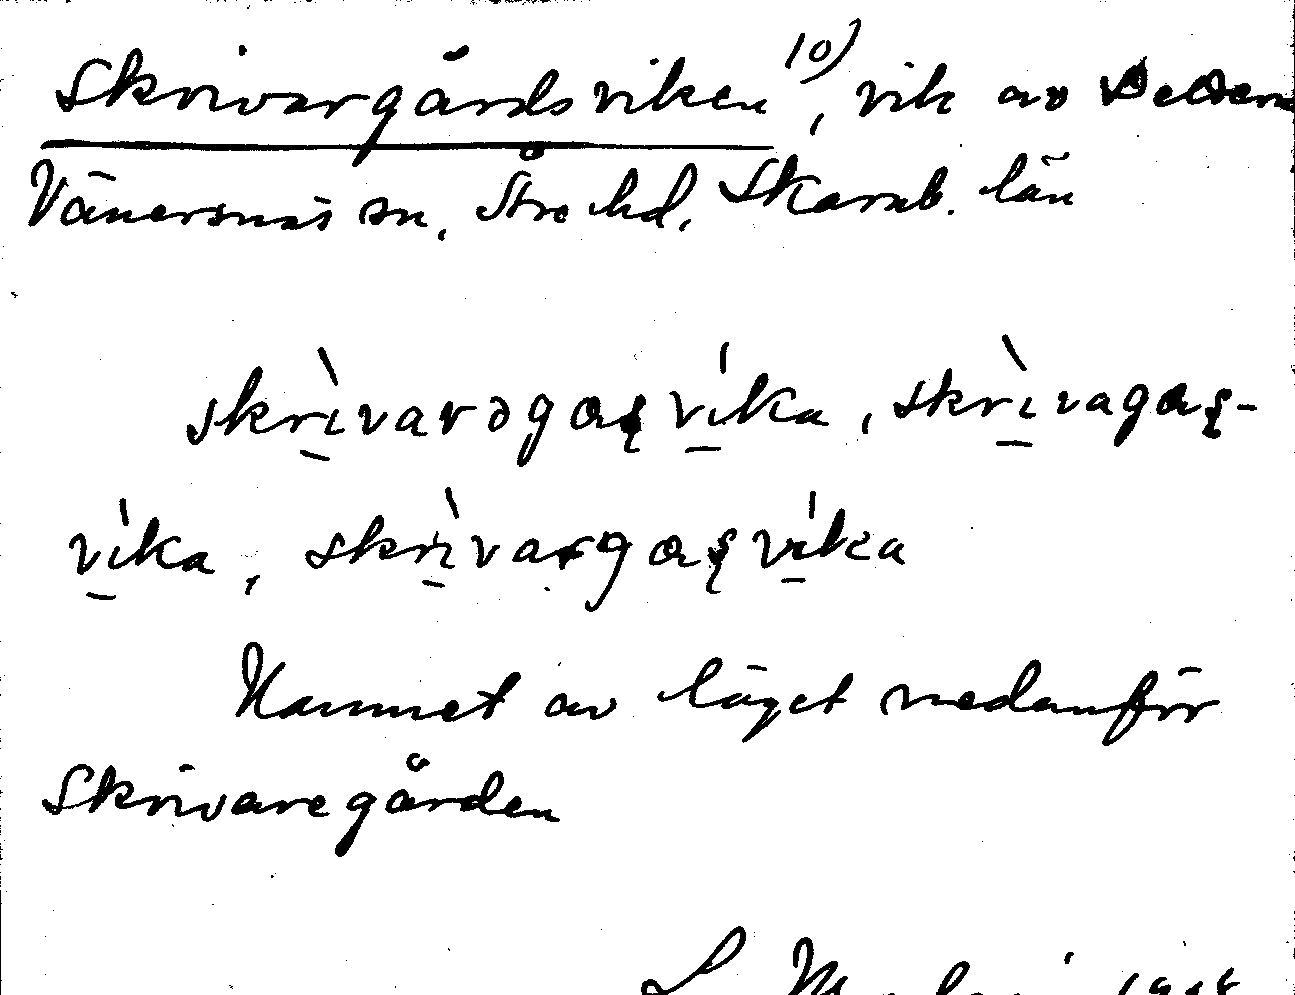 Skrivargårdsviken 10), vik av
Vänersnäs sn, Åse hd, Skarab. län
skrìvarəgaʂvíka, skrìvagaʂ-
víka, skrìvargaʂvíka
Namnet av läget nedanför
Skrivaregården